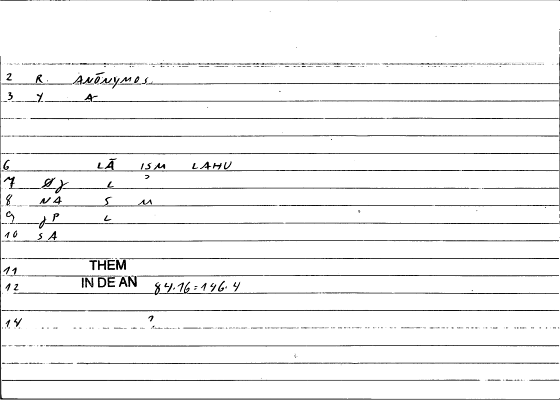 2 R. ANŌNYMOS.
3 Y A
6 LĀ ISM LAHU
7 Øy L ?
8 NA S M
9 yP L
10 SA
11 THEM
IN DE AN
12 84.16=146.4
14 ?